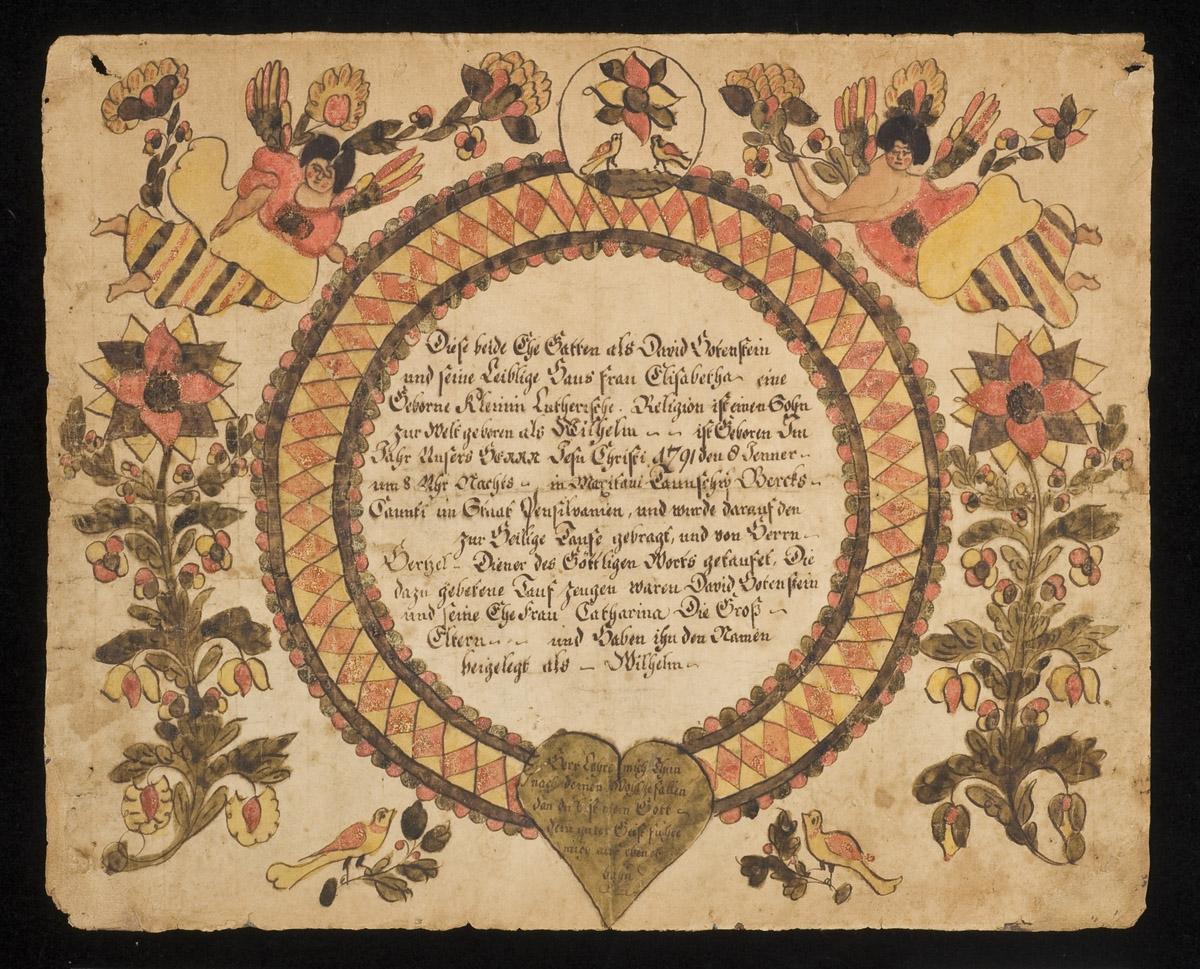 Diese beide Ehe Gatten als David Gotenstein
und seine Leiblige Haus frau Elisabetha eine
Geborne Kleinin Lutherische Religion ist einen Sohn
zur Welt geboren als Wilhelm ist Geboren Im
Jahr Unsers HERRN Jesu Christi 1791 den 8 Jenner
um 8 Uhr Nachts in Maxitani Taunschip Bercks
Caunti im Staat Pensilvanien, und wurde darauf den
zur Heilige Taufe gebragt, und von Herrn
Hertzel Diener des Göttligen Worts getaufet, Die
dazu gebetene Tauf Zeugen waren David Gotenstein
und seine Ehe Frau Catharina Die Groß
Eltern und Haben ihn den Namen
beigelegt als Wilhelm
Herr Lehre mich thun
nach deinen Wohlgefallen
dan du bist mein Gott
dein guter Geist führe
mich auf ebener
bahn